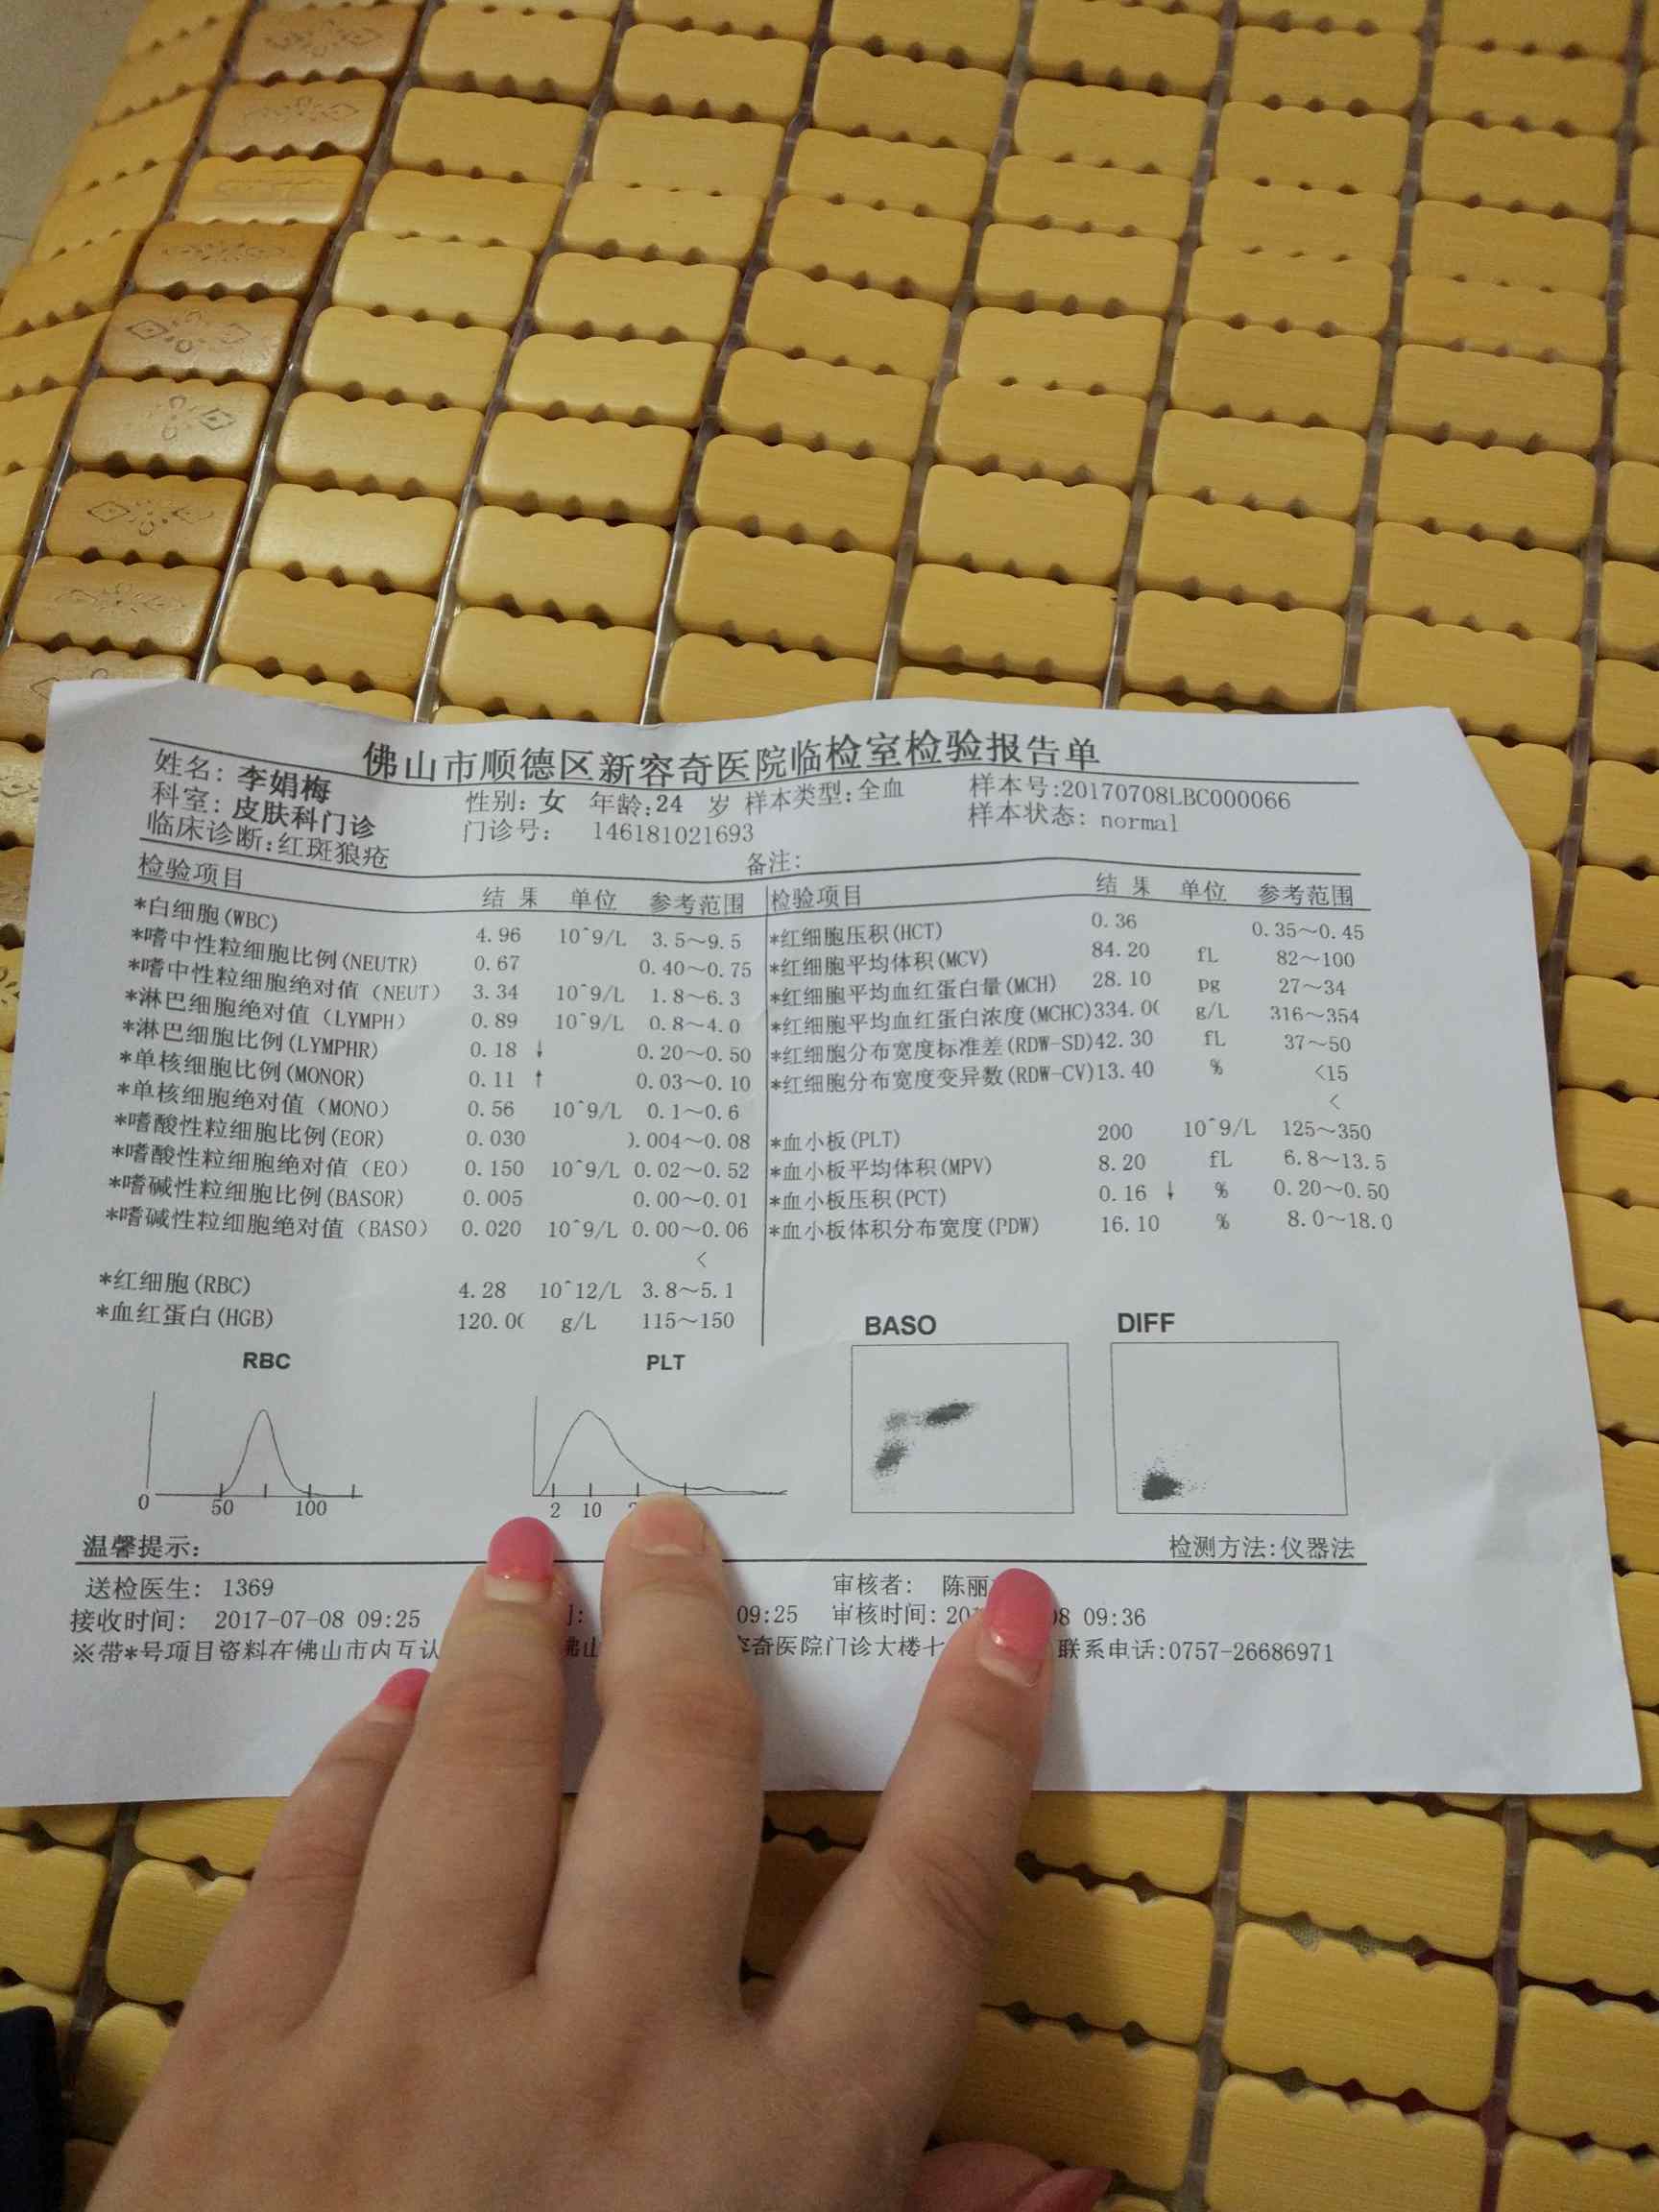 佛山市顺德区新容奇医院临检室检验报告单
姓名: 李娟梅 性别: 女 年龄:24 岁 样本类型:全血 样本号:20170708LBC000066
科室: 皮肤科门诊 门诊号: 146181021693 样本状态: normal
临床诊断:红斑狼疮 备注:
检验项目 结 果 单位 参考范围 检验项目 结 果 单位 参考范围
*白细胞(WBC) 4.96 10^9/L 3.5~9.5 *红细胞压积(HCT) 0.36 0.35~0.45
*嗜中性粒细胞比例(NEUTR) 0.67 0.40~0.75 *红细胞平均体积(MCV) 84.20 fL 82~100
*嗜中性粒细胞绝对值 (NEUT) 3.34 10^9/L 1.8~6.3 *红细胞平均血红蛋白量(MCH) 28.10 pg 27~34
*淋巴细胞绝对值 (LYMPH) 0.89 10^9/L 0.8~4.0 *红细胞平均血红蛋白浓度(MCHC)334.0( g/L 316~354
*淋巴细胞比例(LYMPHR) 0.18 ↓ 0.20~0.50 *红细胞分布宽度标准差(RDW-SD)42.30 fL 37~50
*单核细胞比例(MONOR) 0.11 ↑ 0.03~0.10 *红细胞分布宽度变异数(RDW-CV)13.40 % <15
*单核细胞绝对值 (MONO) 0.56 10^9/L 0.1~0.6 <
*嗜酸性粒细胞比例(EOR) 0.030 ).004~0.08 *血小板(PLT) 200 10^9/L 125~350
*嗜酸性粒细胞绝对值 (EO) 0.150 10^9/L 0.02~0.52 *血小板平均体积(MPV) 8.20 fL 6.8~13.5
*嗜碱性粒细胞比例(BASOR) 0.005 0.00~0.01 *血小板压积(PCT) 0.16 ↓ % 0.20~0.50
*嗜碱性粒细胞绝对值 (BASO) 0.020 10^9/L 0.00~0.06 *血小板体积分布宽度(PDW) 16.10 % 8.0~18.0
<
*红细胞(RBC) 4.28 10^12/L 3.8~5.1
*血红蛋白(HGB) 120.0( g/L 115~150
RBC PLT BASO DIFF
0 50 100 2 10
温馨提示: 检测方法:仪器法
送检医生: 1369 审核者: 陈丽
接收时间: 2017-07-08 09:25 09:25 审核时间:20 08 09:36
※带*号项目资料在佛山市内互认 佛山 容奇医院门诊大楼十 联系电话:0757-26686971